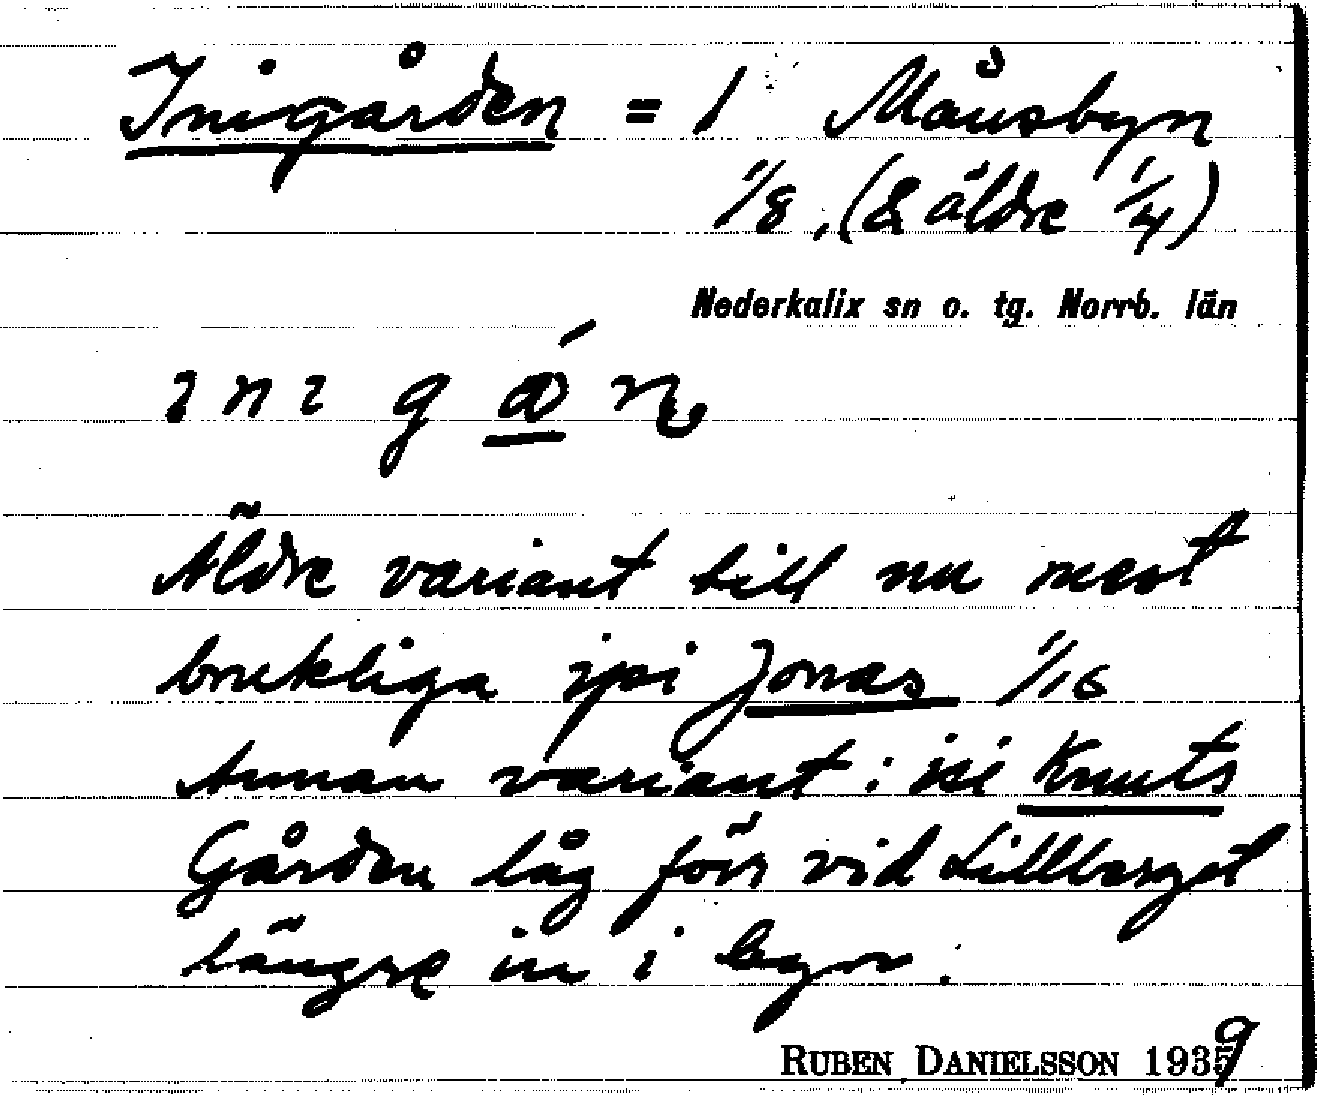 Inigården = 1 Månsbyn
1/8, (& äldre 1/4)
Nederkalix sn o. tg. Norrb. län
Äldre variant till nu mest
brukliga Jonas 1/16
Annan variant: Knuts
Gården låg förr vid Lillberget
längre in i byn.
RUBEN DANIELSSON 1939